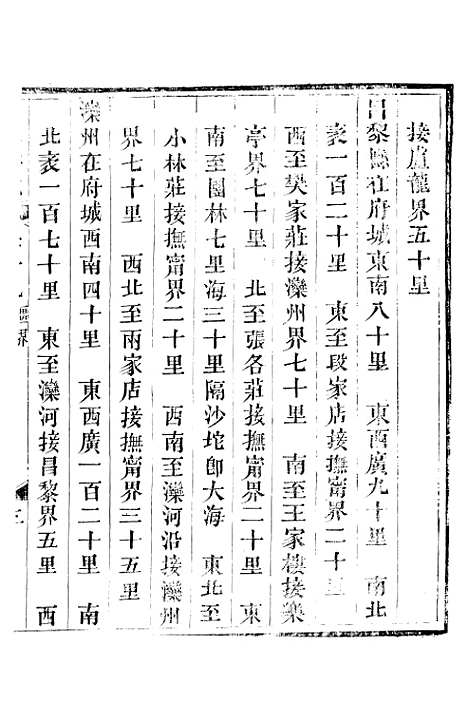 接盧龍界五十里
昌黎縣在府城東南八十里 東西廣九十里 南北
袤一百二十里 東至段家店接撫甯界二十里
西至樊家莊接灤州界七十里 南至王家樓接樂
亭界七十里 北至張各莊接撫甯界二十里 東
南至團林七里海三十里隔沙坨卽大海 東北至
小林莊接撫甯界二十里 西南至灤河沿接灤州
界七十里 西北至兩家店接撫甯界三十五里
灤州在府城西南四十里 東西廣一百二十里 南
北袤一百七十里 東至灤河接昌黎界五里 西